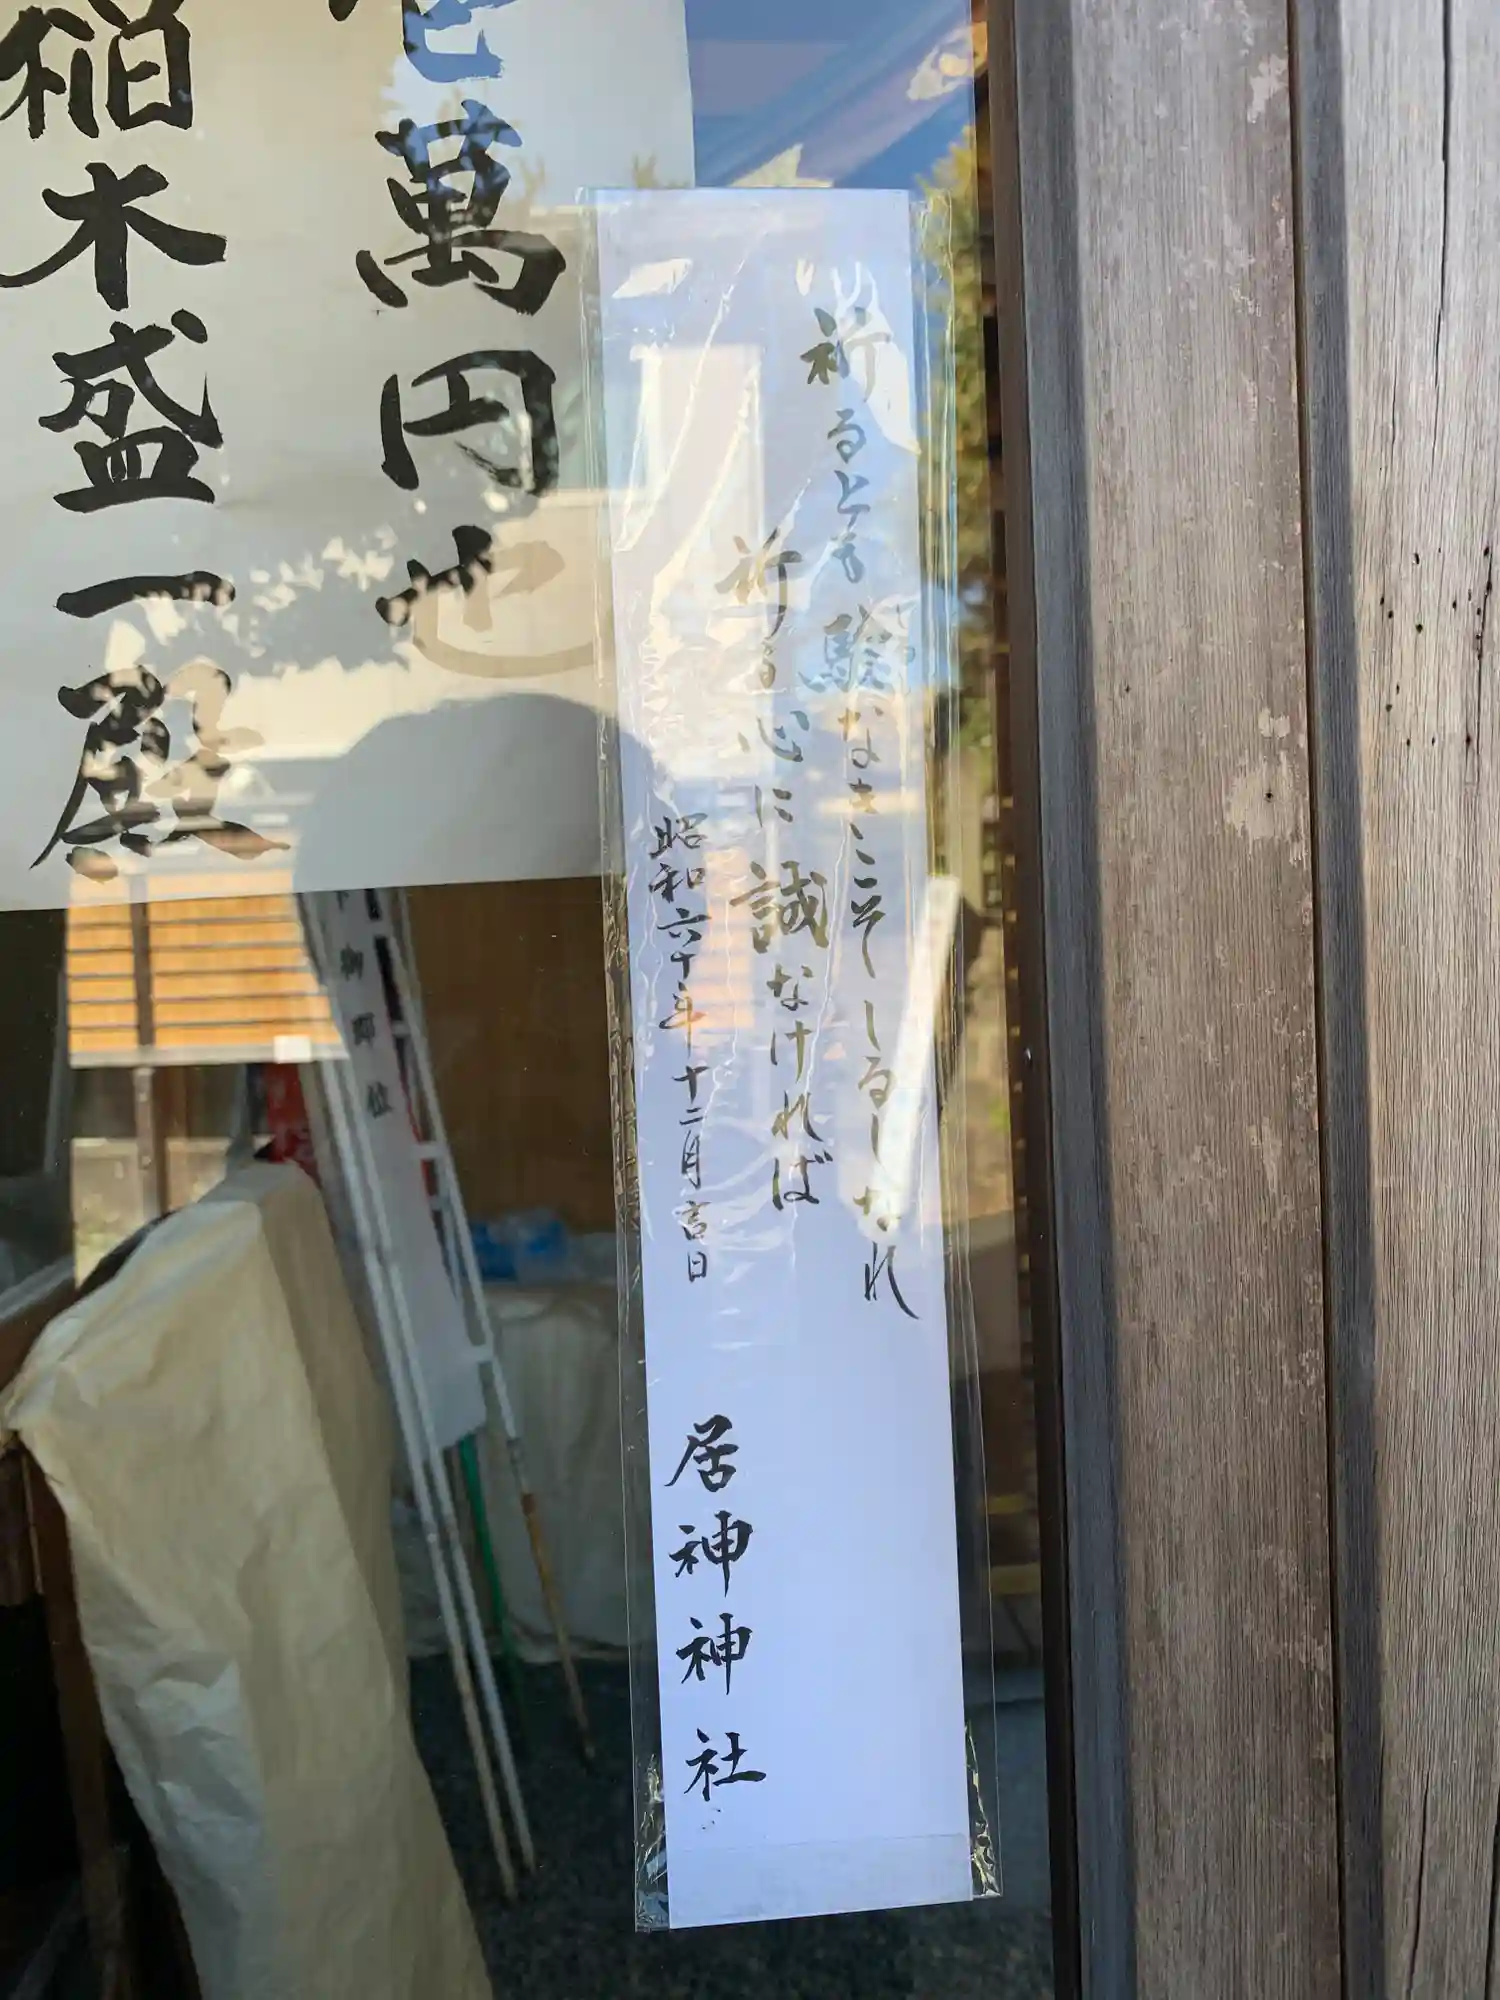 祈るとも験なきこそしるしなれ
しるし
祈る心に誠なければ
昭和六十年十二月吉日
居神神社
萬円也
木盛一殿
御即位